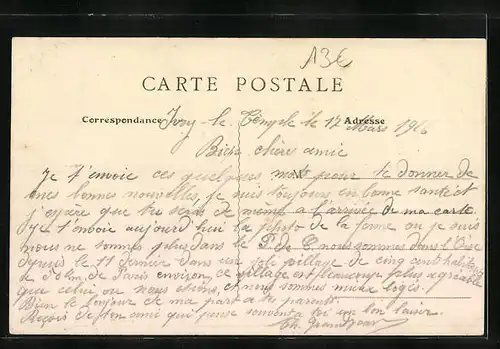 13€
CARTE POSTALE
Correspondance Ivry-le-Temple le 12 Mars 1916 Adresse
Bien chère amie
Je t'envoie ces quelques mots pour te donner de
mes bonnes nouvelles, je suis toujours en bonne santé et
j'espère que tu seras de même a l'arrivée de ma carte
je t'envoie aujourd'hui la photo de la ferme ou je suis
nous ne sommes plus dans le P. de C. nous sommes dans l'Oise
depuis le 11 dernier dans un joli village de cinq cent habitants
a 50 km. de Paris environ, ce village est beaucoup plus agréable
que celui ou nous étions, et nous sommes mieux logés.
Bien le bonjour de ma part a tes parents.
Reçois de ton ami qui pense souvent a toi un bon baiser.